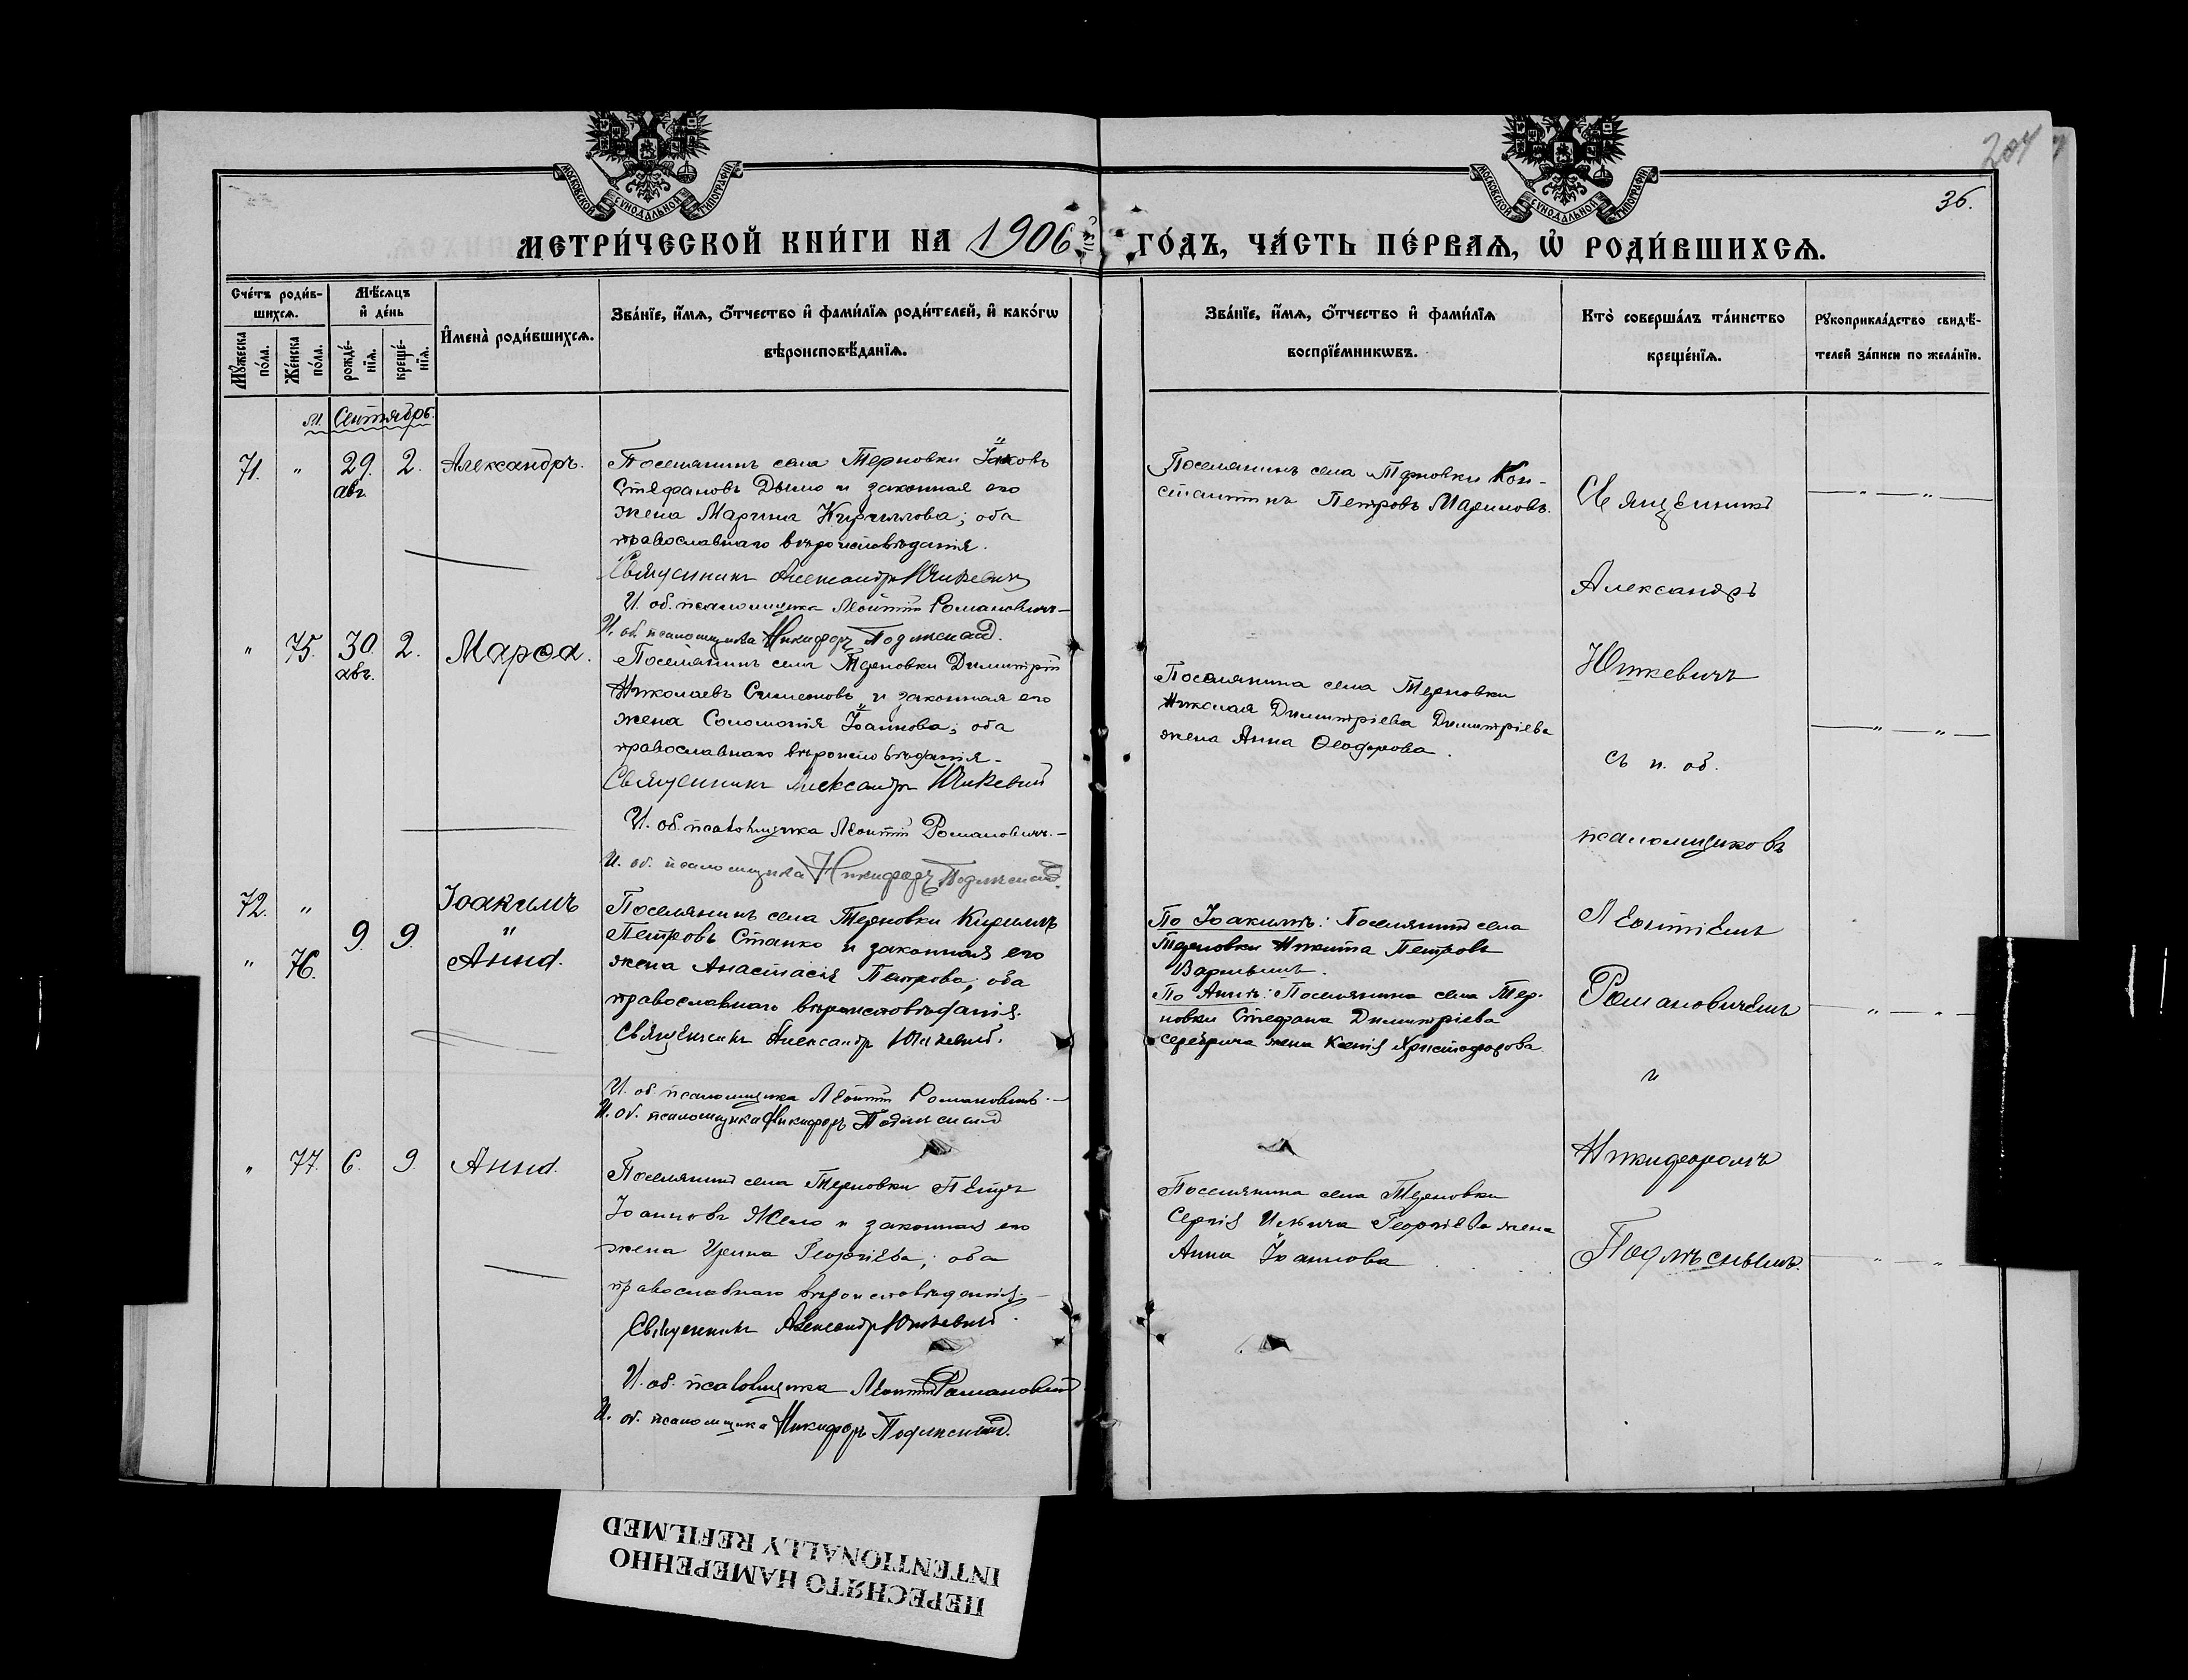 204
36.
МОСКОВСКОЙ СѴНОДАЛЬНОЙ ТИПОГРАФІИ
МОСКОВСКОЙ СѴНОДАЛЬНОЙ ТИПОГРАФІИ
МЕТРИ́ЧЕСКОЙ КНИ́ГИ НА 1906 ГО́ДЪ, ЧА́СТЬ ПЕ́РВАѦ, Ѡ РОДИ́ВШИХСѦ.
Сче́тъ роди́в-
шихсѧ.
Мꙋ́жеска по́ла.
Же́нска по́ла.
Мѣ́сѧцъ
и҆ де́нь
рожде́-
нїѧ.
креще́-
нїѧ.
И҆мена̀ роди́вшихсѧ.
Зва́нїе, и҆́мѧ, ѻ҆́тчество и҆ фами́лїѧ роди́телей, и҆ како́гѡ
вѣроисповѣ́данїѧ.
Зва́нїе, и҆́мѧ, ѻ҆́тчество и҆ фами́лїѧ
воспрїе́мникѡвъ.
Кто̀ соверша́лъ та́инство
креще́нїѧ.
Рꙋкоприкла́дство свидѣ́-
телей за́писи по жела́нїю.
м. Сентябрь.
71. " 29. авг. 2. Александръ.
Поселянинъ села Терновки Іаковъ
Стефановъ Дымо и законная его
жена Марина Кириллова; оба
православнаго вѣроисповѣданія.
Священникъ Александръ Юшкевич
И. об. псаломщика Леонтій Романовичъ
И. об. псаломщика Никифоръ Подлѣсный.
Поселянинъ села Терновки Кон-
стантинъ Петровъ Мариновъ.
" 75. 30. авг. 2. Марѳа.
Поселянинъ села Терновки Димитрій
Николаевъ Симеоновъ и законная его
жена Соломонія Іоаннова; оба
православнаго вѣроисповѣданія.
Священникъ Александръ Юшкевич
И. об. псаломщика Леонтій Романовичъ.
И. об. псаломщика Никифоръ Подлѣсный.
Поселянина села Терновки
Николая Димитріева Димитріева
жена Анна Ѳеодорова.
72. " 9. 9. Іоакимъ
" 76. и Анна.
Поселянинъ села Терновки Кириллъ
Петровъ Станко и законная его
жена Анастасія Петрова; оба
православнаго вѣроисповѣданія.
Священникъ Александръ Юшкевич.
И. об. псаломщика Леонтій Романовичъ.
И. об. псаломщика Никифоръ Подлѣсный
По Іоакимѣ: Поселянинъ села
Терновки Никита Петровъ
По Аннѣ: Поселянина села Тер-
новки Стефана Димитріева
жена Ксенія Христофорова
" 77. 6. 9. Анна.
Поселянинъ села Терновки Петръ
Іоанновъ Жело и законная его
жена Ирина Георгіева; оба
православнаго вѣроисповѣданія.
Священникъ Александръ Юшкевич.
И. об. псаломщика Леонтій Романович
И. об. псаломщика Никифоръ Подлѣсный.
Поселянина села Терновки
Сергія Георгіева жена
Анна Іоаннова
Священникъ
Александръ
Юшкевичъ
съ и. об.
псаломщиковъ
Леонтіемъ
Романовичемъ
и
Никифоромъ
Подлѣснымъ.
ПЕРЕСНЯТО НАМЕРЕННО
INTENTIONALLY REFILMED